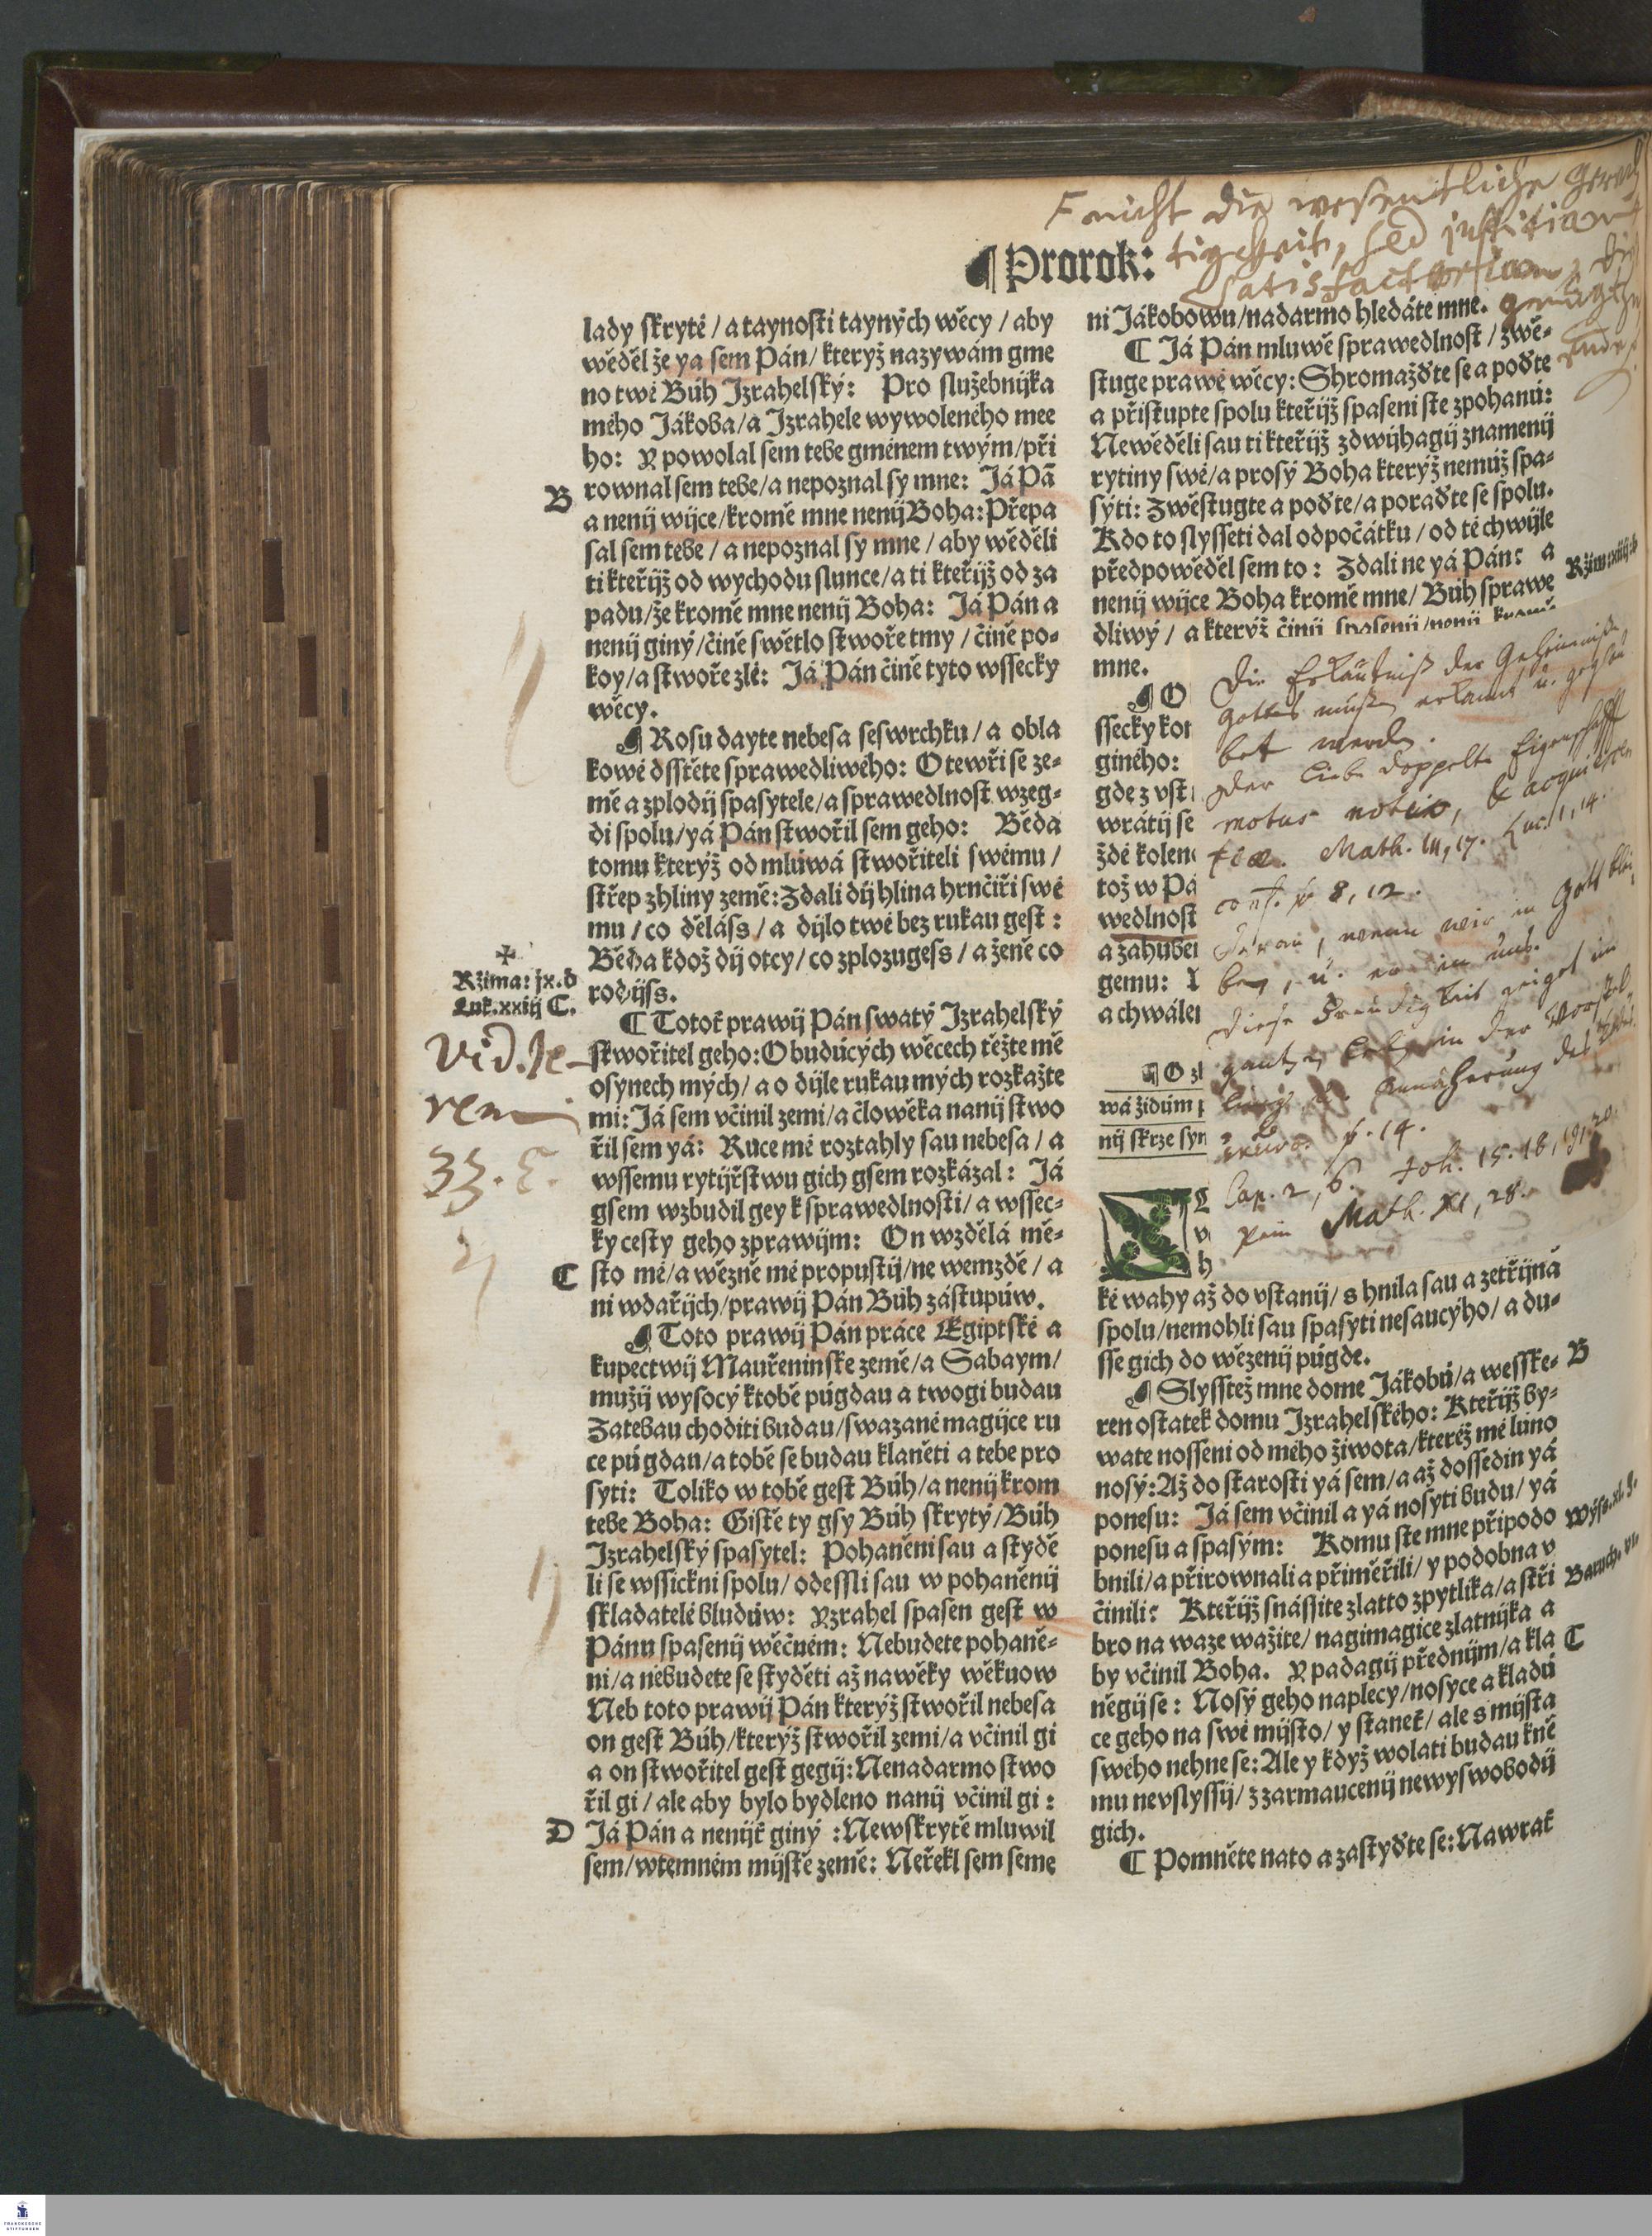 F nicht die wesentliche gerech
tigkeit, sed justitiam
satisfactoriam, die
¶ Prorok:
lady skryté / a taynosti tayných wěcy / aby
wěděl že ya sem Pán / kterýž nazywám gme
no twé Búh Izrahelský: Pro služebnijka
mého Jákoba / a Izrahele wywoleného mee
ho: Y powolal sem tebe gménem twým / při
B
rownal sem tebe / a nepoznal sy mne: Já Pā
a nenij wijce / kromě mne nenij Boha: Přepa
sal sem tebe / a nepoznal sy mne / aby wěděli
ti kteřijž od wychodu slunce / a ti kteřijž od za
padu / že kromě mne nenij Boha: Já Pán a
nenij giný / čině swětlo stwoře tmy / čině po-
koy / a stwoře zlé: Já Pán čině tyto wssecky
wěcy.
¶ Rosu dayte nebesa seswrchku / a obla
kowé dsstěte sprawedliwého: Otewři se ze-
mě a zplodij spasytele / a sprawedlnost wzeg-
di spolu / yá Pán stwořil sem geho: Běda
tomu kterýž odmlúwá stwořiteli swému /
střep zhliny země: Zdali dij hlina hrnčiři swé
mu / co děláss / a dijlo twé bez rukau gest:
Běda kdož dij otcy / co zplozugess / a ženě co
rodijss.
Ržima: jx. d
Luk. xxiij C.
Vid. Je-
rem
33. E.
C Totoť prawij Pán swatý Izrahelský
stwořitel geho: O budúcých wěcech těžte mě
o synech mých / a o dijle rukau mých rozkažte
mi: Já sem včinil zemi / a člowěka nanij stwo
řil sem yá: Ruce mé roztahly sau nebesa / a
wssemu rytijřstwu gich gsem rozkázal: Já
gsem wzbudil gey k sprawedlnosti / a wssec-
ky cesty geho zprawijm: On wzdělá mě-
C
sto mé / a wězně mé propustij / ne wemzdě / a
ni wdařijch / prawij Pán Búh zástupúw.
¶ Toto prawij Pán práce Egiptské a
kupectwij Mauřeninske země / a Sabaym /
mužij wysocý ktobě púgdau a twogi budau
Zatebau choditi budau / swazané magijce ru
ce púgdau / a tobě se budau klaněti a tebe pro
syti: Toliko w tobě gest Búh / a nenij krom
tebe Boha: Gistě ty gsy Búh skrytý / Búh
Izrahelský spasytel: Pohaněni sau a stydě
li se wssickni spolu / odessli sau w pohaněnij
skladatelé bludúw: Yzrahel spasen gest w
Pánu spasenij wěčném: Nebudete pohaně-
ni / a nebudete se styděti až nawěky wěkuow
Neb toto prawij Pán kterýž stwořil nebesa
on gest Búh / kterýž stwořil zemi / a včinil gi
a on stwořitel gest gegij: Nenadarmo stwo
řil gi / ale aby bylo bydleno nanij včinil gi:
D
Já Pán a nenijť giný: Newskrytě mluwil
sem / wtemném mijstě země: Neřekl sem seme
ni Jákobowu / nadarmo hledáte mne.
C Já Pán mluwě sprawedlnost / zwě-
stuge prawé wěcy: Shromažďte se a poďte
a přistupte spolu kteřijž spaseni ste zpohanú:
Newěděli sau ti kteřijž zdwijhagij znamenij
rytiny swé / a prosý Boha kterýž nemúž spa-
syti: Zwěstugte a poďte / a poraďte se spolu.
Kdo to slysseti dal odpočátku / od té chwijle
předpowěděl sem to: Zdali ne yá Pán: a
nenij wijce Boha kromě mne / Búh sprawe
dliwý / a kterýž činij spasenij / nenij kromě
mne.
¶ O
ssecky kon
giného:
gde z vst
wrátij se
ždé kolen
tož w Pá
wedlnost
a zahuben
gemu:
a chwálen
Die Erläutniß der Geheimniße
Gottes müßen erkannt u. geglau
bet werden.
Der Liebe doppelte Eigenschafft
motus notiæ, & acquiescen
tiæ. Math. III, 17. Luc. 1, 14.
conf. 8, 12.
daran, wenn wir in Gott blei
ben, u. er in uns.
Diese Freudigkeit zeiget im
Cap. 2, 6. Joh. 15. 18, 19, 20.
Math. XI, 28.
¶ O zl
wá židům p
nij skrze syn
ké wahy až do vstanij / shnila sau a zetřijná
spolu / nemohli sau spasyti nesaucýho / a du-
sse gich do wězenij púgde.
¶ Slysstež mne dome Jákobú / a wesske-
B
ren ostatek domu Izrahelského: Kteřijž by-
wate nosseni od mého žiwota / kteréž mé lúno
nosý: Až do starosti yá sem / a až do ssedin yá
ponesu: Já sem včinil a yá nosyti budu / yá
ponesu a spasým: Komu ste mne připodo
bnili / a přirownali a přiměřili / y podobna v
činili: Kteřijž snássite zlatto zpytlika / a stři
bro na waze wažite / nagimagice zlatnijka a
C
by včinil Boha. Y padagij přednijm / a kla
něgij se: Nosý geho naplecy / nosyce a kladú
ce geho na swé mijsto / y staneť / ale s mijsta
swého nehne se: Ale y když wolati budau kně
mu nevslyssij / z zarmaucenij newyswobodij
gich.
C Pomněte nato a zastyďte se: Nawrať
FRANCKESCHE
STIFTUNGEN